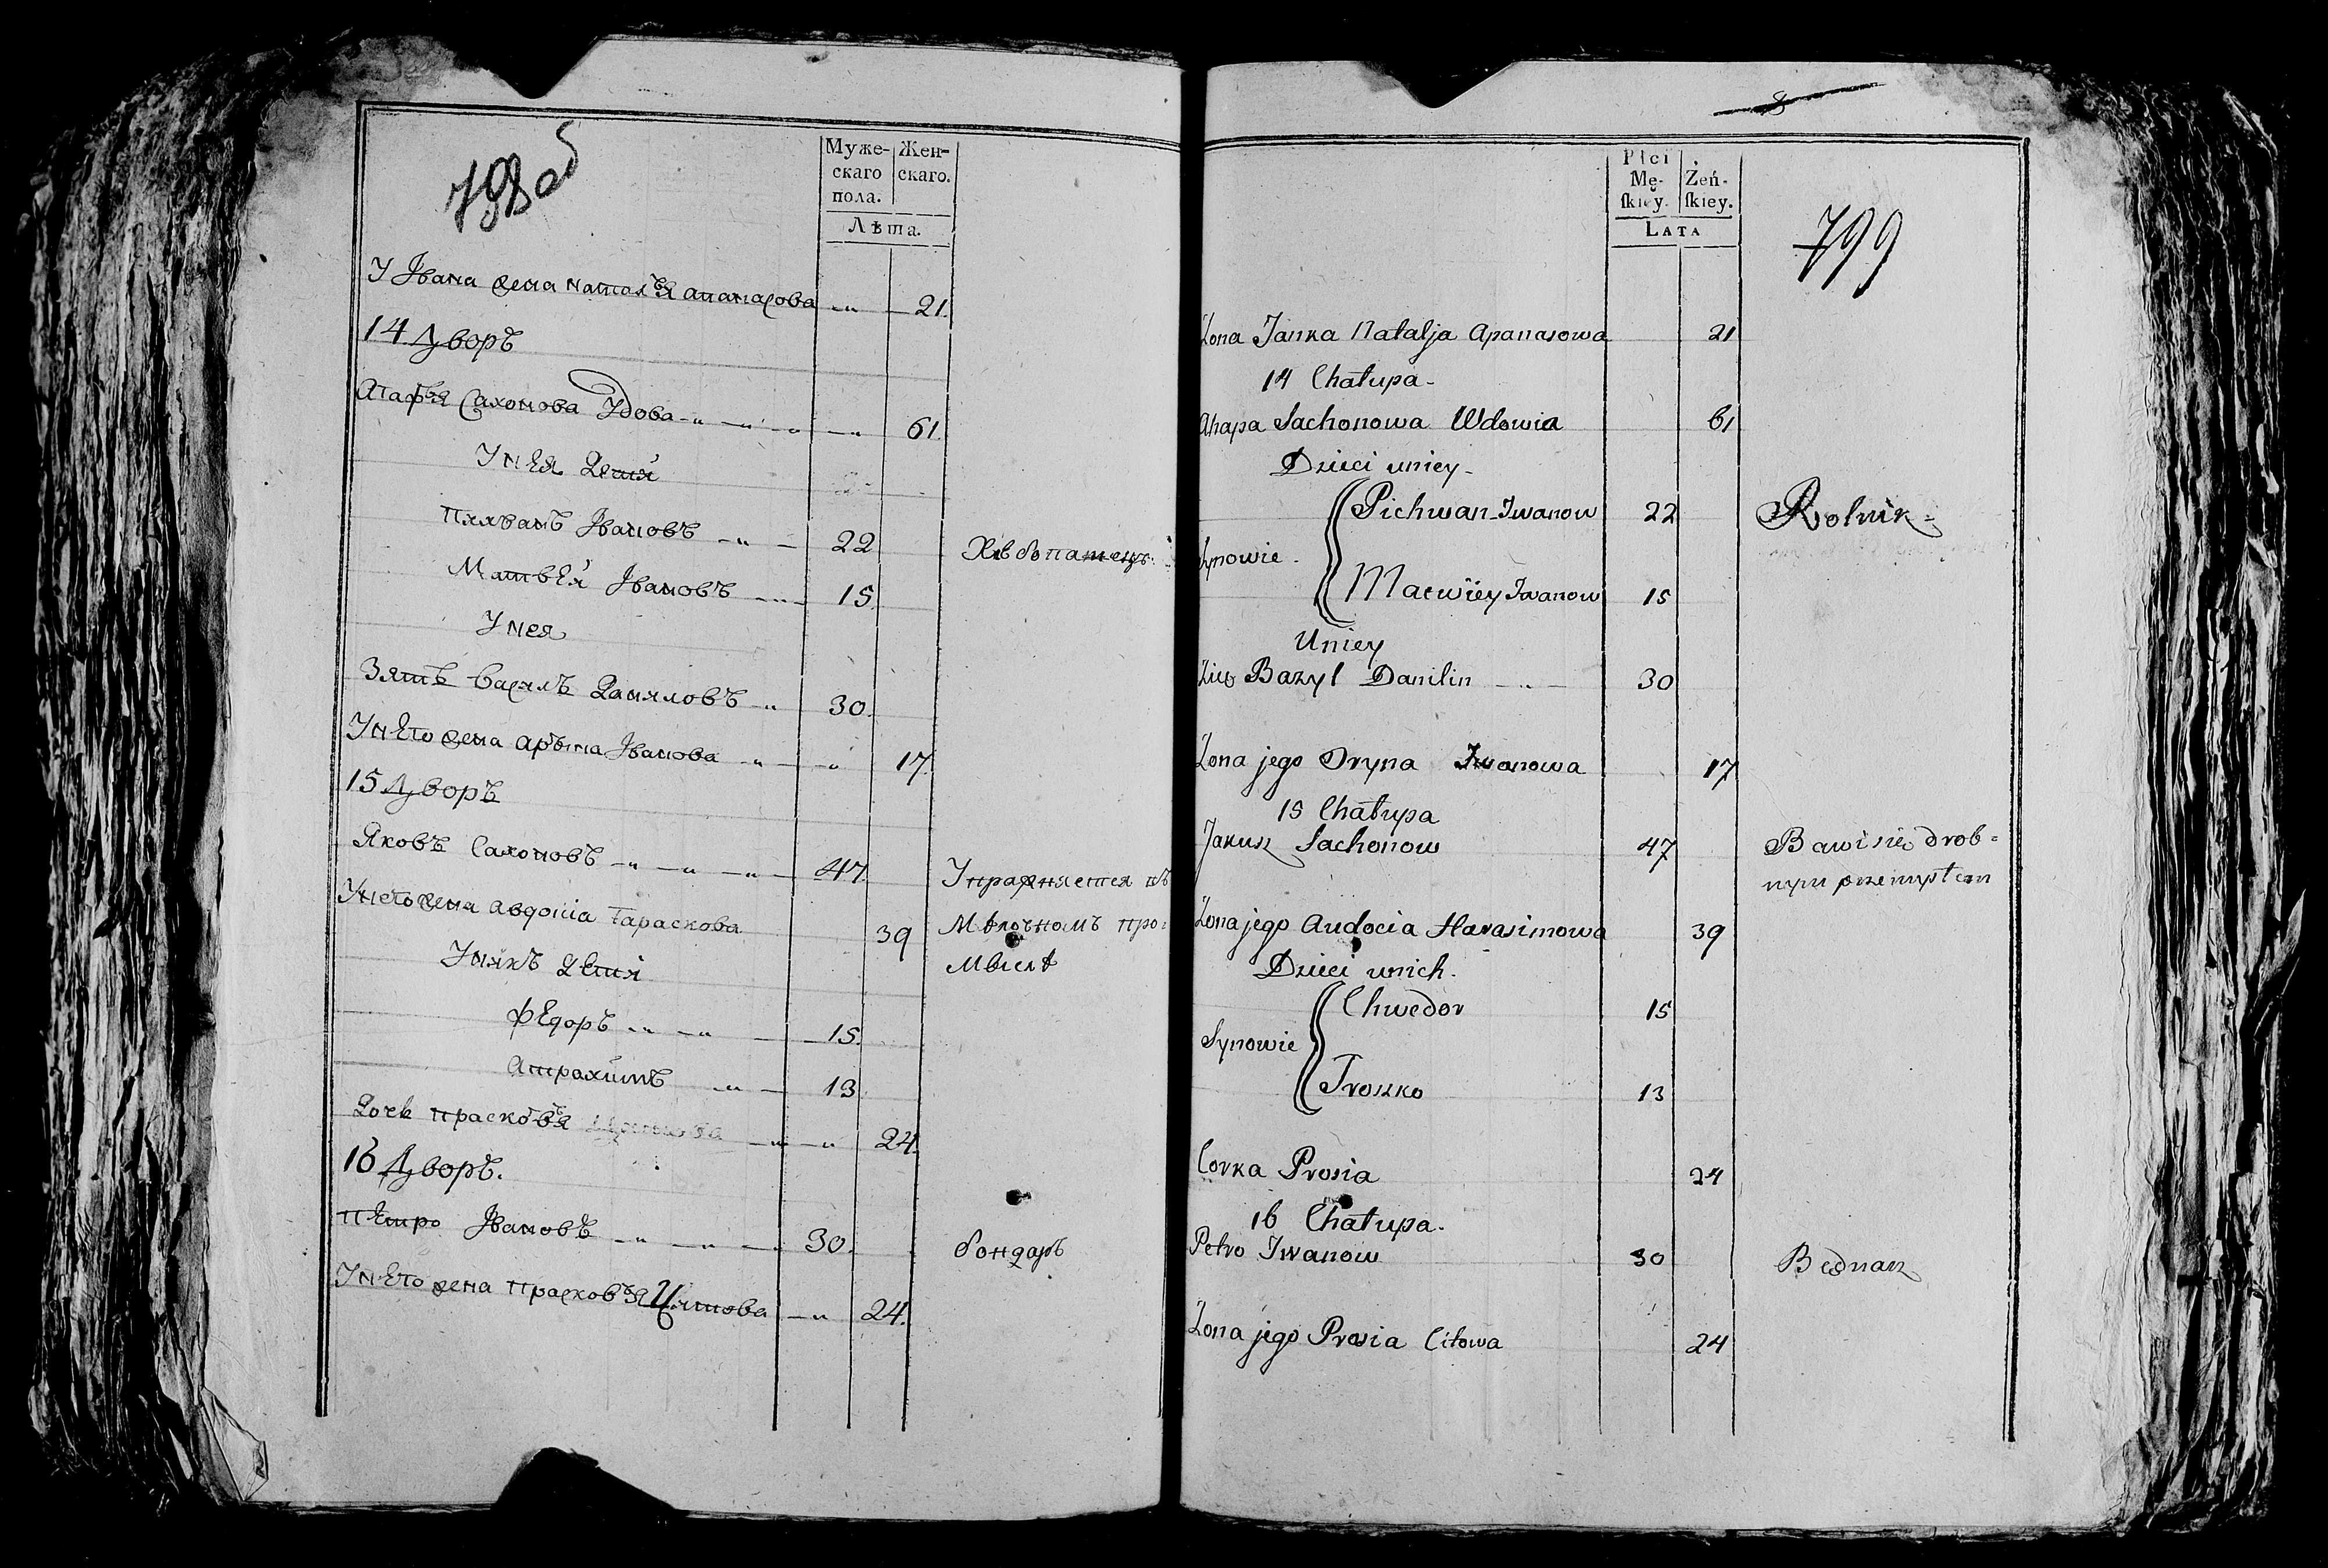 798 об
Муже-
скаго
пола.
Жен-
скаго.
Лѣта.
У Івана жена наталъя апанасова -„- 21.
14 Дворъ
Агафъя Сахонова удова -„- -„- „ -„ 61.
У нея дети
Пихванъ Івановъ -„- 22 Хлѣбопашецъ.
Матвей Івановъ -„- 15.
У нея
Зять Василъ Даниловъ -„ 30.
У него жена арына Іванова -„- „ 17.
15 Дворъ
Яковъ Сахоновъ -„-„-„- 47. Упражняется въ
У него жена авдотиа Тараскова 39 Мѣлочномъ про-
У нихъ дети мыслѣ
Федоръ -„-„- 15.
Атрахимъ -„- 13
Дочь прасковъя -„-„ 24.
16 Дворъ.
петро Івановъ -„-„- 30. бондаръ
У него жена прасковъя Цитова -„ 24.
8
Płci
Mę-
ſkiey.
Żeń-
ſkiey.
Lata
799
Zona Janka Natalja Apanasowa 21
14 Chałupa-
Ahapa Sachonowa Wdowia 61
Dzieci uniey-
Synowie Pichwan Iwanow 22 Rolnik-
Macwiey Iwanow 15
Uniey
Zięć Bazyl Danilin -„- 30
Zona jego Oryna Iwanowa 17
15 Chałupa
Jakusz Sachonow 47 Bawi się drob=
nym przemysłem
Zona jego Audocia Harasimowa 39
Dzieci unich.
Synowie Chwedor 15
Troszko 13
Corka Prosia 24
16 Chałupa.
Petro Iwanow 30 Bednarz
Zona jego Prosia Citowa 24